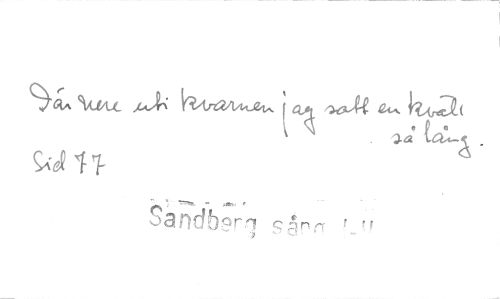 Där nere uti kvarnen jag satt en kväll
så lång.
Sid 77
Sandberg sång